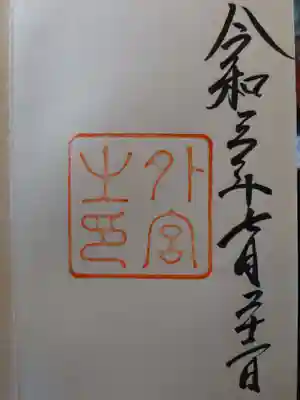 令和三年七月二十二日
外宮
之印